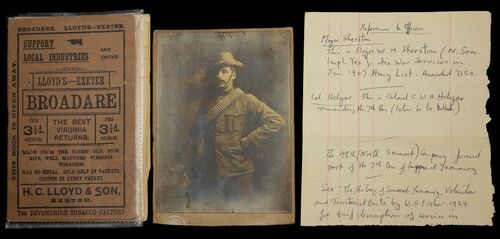 BROADARE. LLOYD'S—EXETER.
THIS BOOK IS GIVEN AWAY.
SUPPORT
LOCAL INDUSTRIES
AND SMOKE
LLOYD'S—EXETER
BROADARE
PER
3½d.
OUNCE.
THE BEST
VIRGINIA
RETURNS.
PER
3½d.
OUNCE.
MADE FROM THE FINEST OLD, RICH,
RIPE, WELL MATURED VIRGINIA
TOBACCOS.
HAS NO EQUAL. SOLD ONLY IN PACKETS.
COUPON IN EVERY PACKET
H. C. LLOYD & SON,
EXETER.
THE DEVONSHIRE TOBACCO FACTORY.
References to Officers
Major Sherston
This is Major W. M. Sherston (N. Som
Impl. Yeo) See War Services in
Jan 1907 Army List. Awarded DSO.
Col Helyar This is Colonel C. W. H. Helyar
commanding the 7th Bn (later to be killed).
The 48th (North Somerset) Company formed
part of the 7th Bn of Imperial Yeomanry
See "The History of Somerset Yeomanry, Volunteer
and Territorial Units" by W. G. Fisher 1924
for brief description of service in